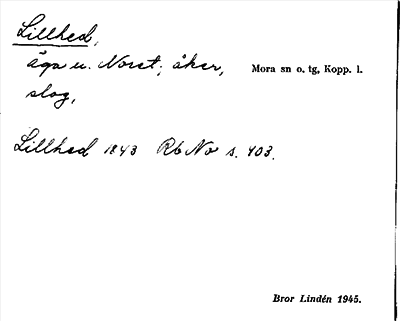 Lillhed,
äga u. Noret; åker,
Mora sn o. tg, Kopp. l.
slog,
Lillhed 1843 Rb No s. 403.
Bror Lindén 1945.